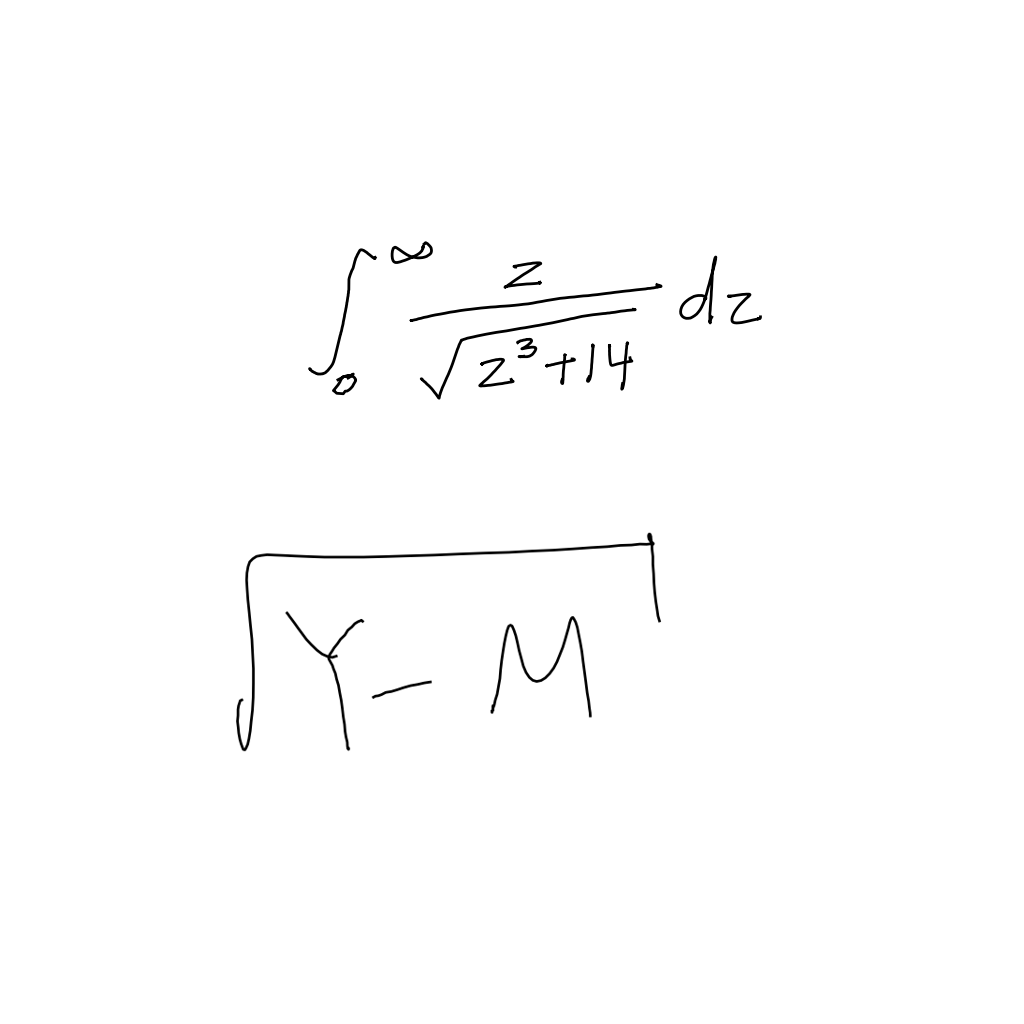 ∫_0^∞ z/√(z^3+14) dz
√(Y - M)